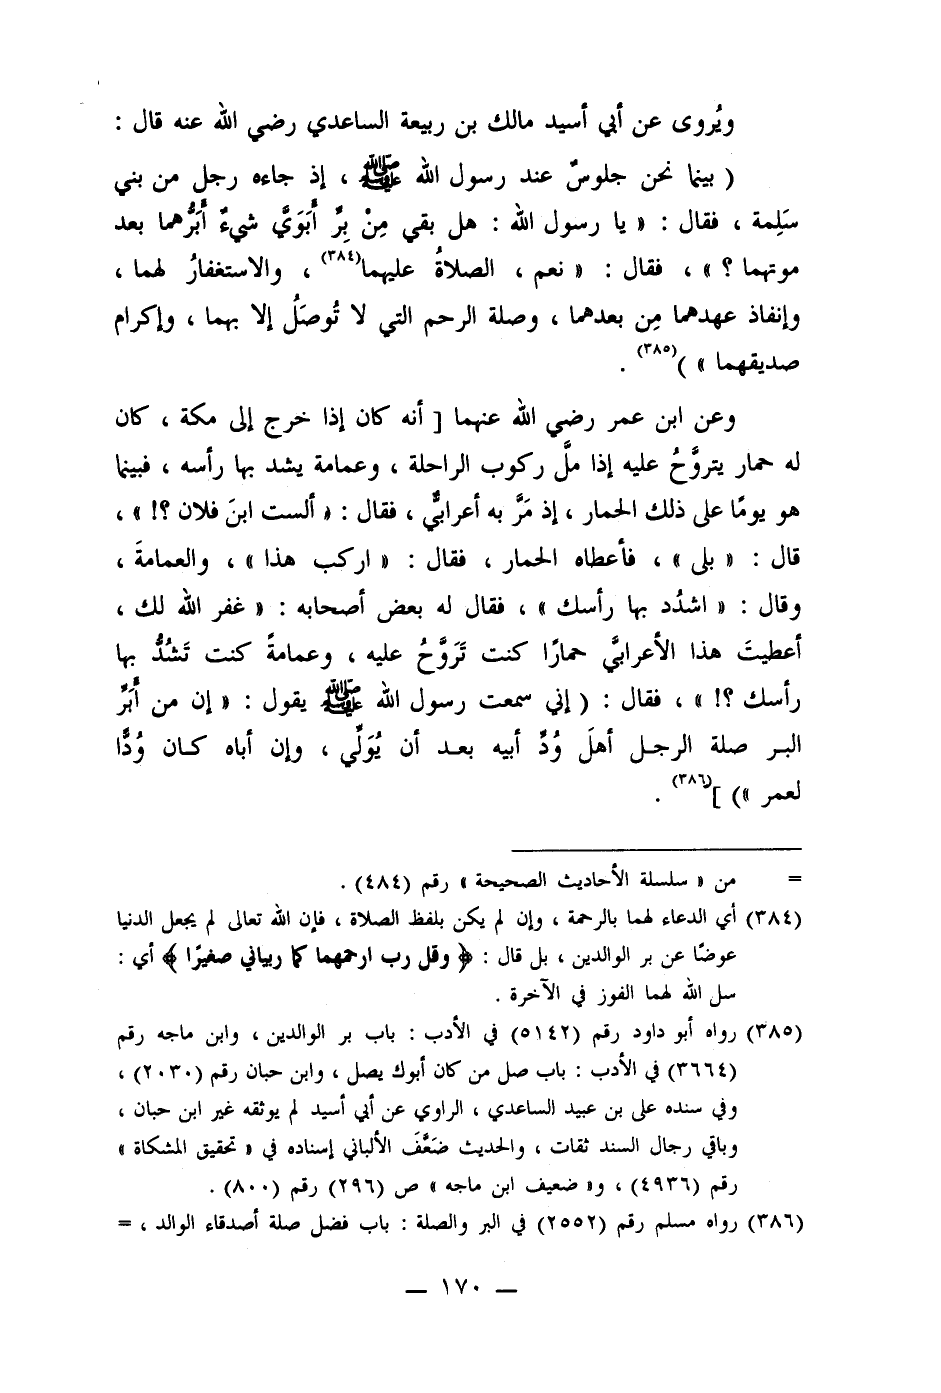 ويُروى عن أبي أسيد مالك بن ربيعة الساعدي رضي الله عنه قال :
( بينما نحن جلوسٌ عند رسول الله ﷺ ، إذ جاءه رجل من بني
سَلِمة ، فقال : « يا رسول الله : هل بقي مِنْ بِرِّ أَبَوَيَّ شيءٌ أَبَرُّهما بعد
موتهما ؟ » ، فقال : « نعم ، الصلاةُ عليهما(٣٨٤) ، والاستغفارُ لهما ،
وإنفاذ عهدهما مِن بعدهما ، وصلة الرحم التي لا تُوصَلُ إلا بهما ، وإكرام
صديقهما » )(٣٨٥) .
وعن ابن عمر رضي الله عنهما [ أنه كان إذا خرج إلى مكة ، كان
له حمار يتروَّحُ عليه إذا ملَّ ركوب الراحلة ، وعمامة يشد بها رأسه ، فبينما
هو يومًا على ذلك الحمار ، إذ مَرَّ به أعرابيٌّ ، فقال : « ألست ابنَ فلان ؟! » ،
قال : « بلى » ، فأعطاه الحمار ، فقال : « اركب هذا » ، والعمامةَ ،
وقال : « اشدُد بها رأسك » ، فقال له بعض أصحابه : « غفر الله لك ،
أعطيتَ هذا الأعرابيَّ حمارًا كنت تَرَوَّحُ عليه ، وعمامةً كنت تَشُدُّ بها
رأسك ؟! » ، فقال : ( إني سمعت رسول الله ﷺ يقول : « إن من أَبَرِّ
البر صلة الرجل أهلَ وُدِّ أبيه بعد أن يُوَلِّي ، وإن أباه كان وُدًّا
لعمر ») ](٣٨٦) .
= من « سلسلة الأحاديث الصحيحة » رقم (٤٨٤) .
(٣٨٤) أي الدعاء لهما بالرحمة ، وإن لم يكن بلفظ الصلاة ، فإن الله تعالى لم يجعل الدنيا
عوضًا عن بر الوالدين ، بل قال : ﴿ وقل رب ارحمهما كما ربياني صغيرًا ﴾ أي :
سل الله لهما الفوز في الآخرة .
(٣٨٥) رواه أبو داود رقم (٥١٤٢) في الأدب : باب بر الوالدين ، وابن ماجه رقم
(٣٦٦٤) في الأدب : باب صل من كان أبوك يصل ، وابن حبان رقم (٢٠٣٠) ،
وفي سنده على بن عبيد الساعدي ، الراوي عن أبي أسيد لم يوثقه غير ابن حبان ،
وباقي رجال السند ثقات ، والحديث ضَعَّفَ الألباني إسناده في « تحقيق المشكاة »
رقم (٤٩٣٦) ، و« ضعيف ابن ماجه » ص (٢٩٦) رقم (٨٠٠) .
(٣٨٦) رواه مسلم رقم (٢٥٥٢) في البر والصلة : باب فضل صلة أصدقاء الوالد ، =
— ١٧٠ —